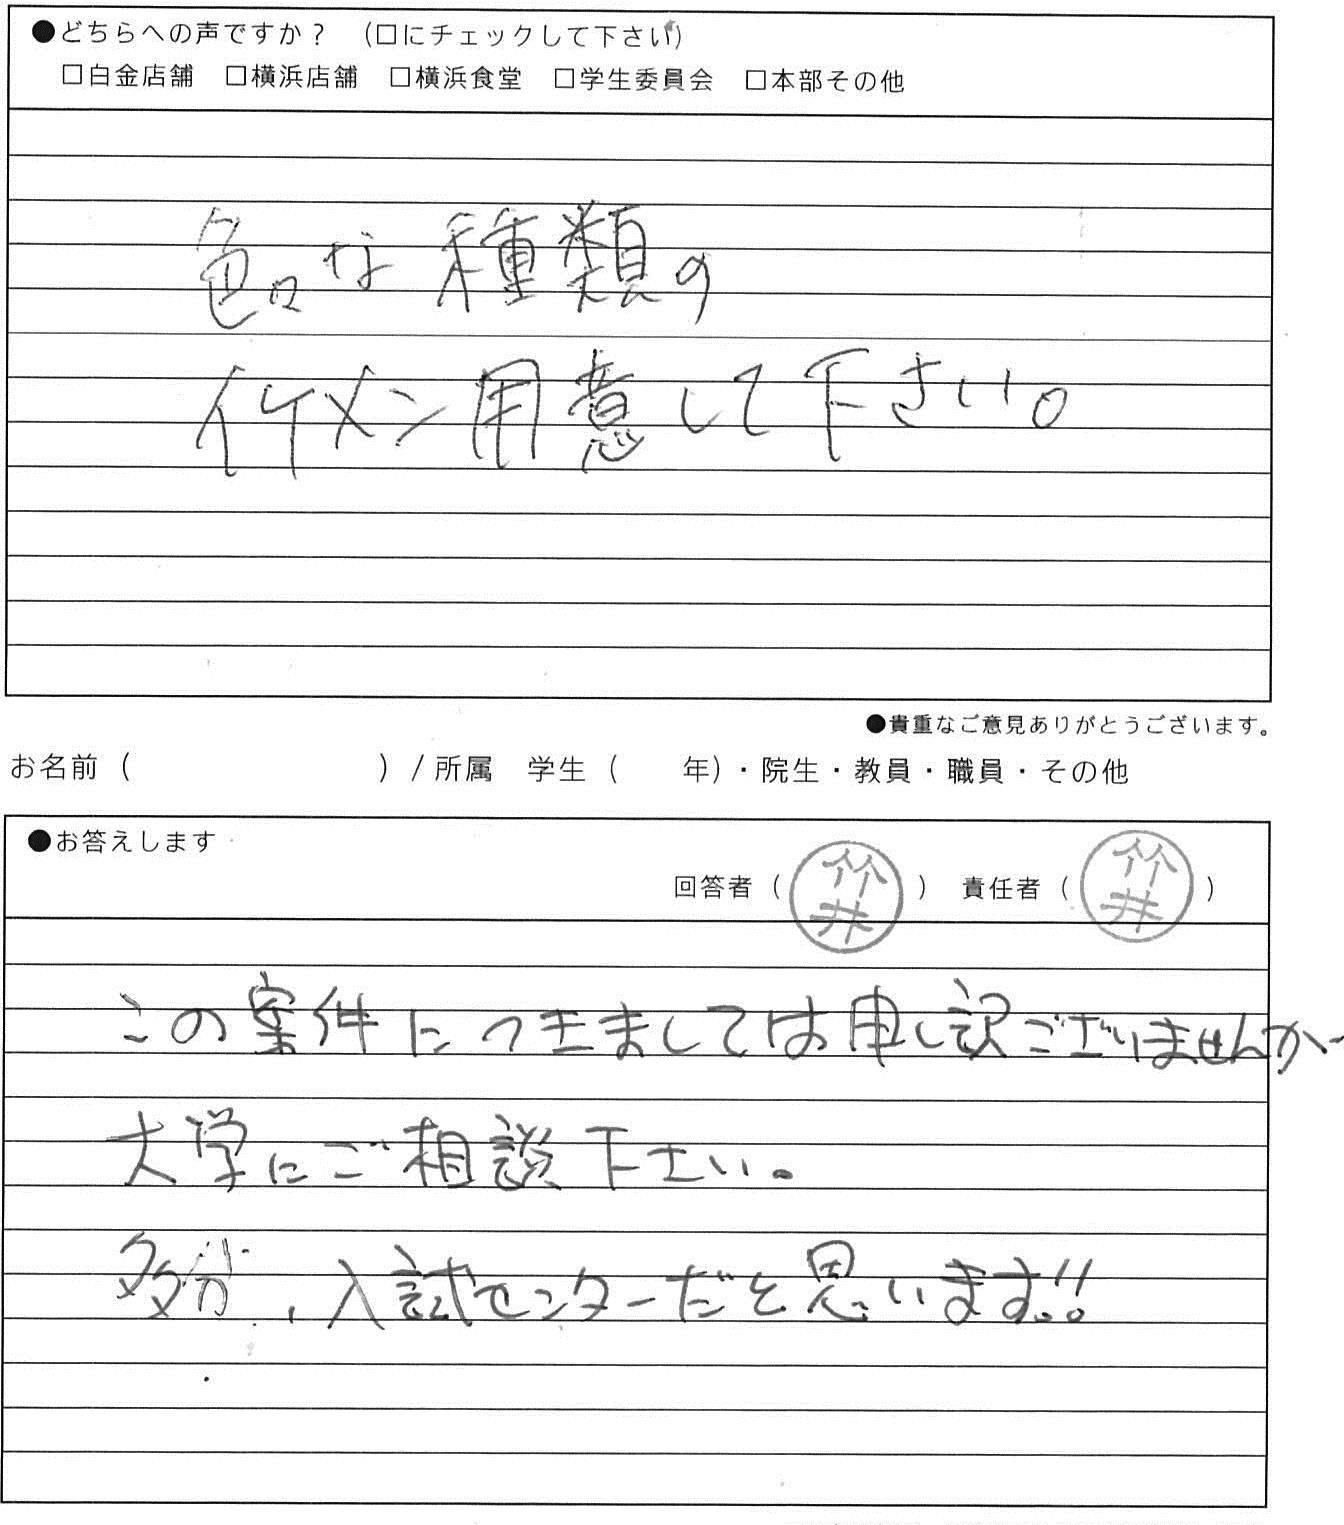 ●どちらへの声ですか？　(□にチェックして下さい)
□白金店舗　□横浜店舗　□横浜食堂　□学生委員会　□本部その他
色々な種類の
イケメン用意して下さい。
●貴重なご意見ありがとうございます。
お名前（　　　　　　　　）/所属　学生（　　年)・院生・教員・職員・その他
●お答えします
回答者（竹井）　責任者（竹井）
この案件につきましては申し訳ございませんが、
大学にご相談下さい。
多分、入試センターだと思います!!